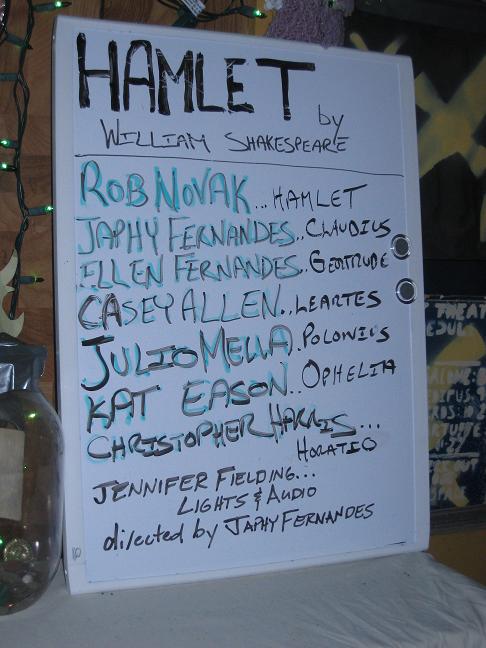 HAMLET by
WILLIAM SHAKESPEARE
ROB NOVAK...HAMLET
JAPHY FERNANDES..CLAUDIUS
ELLEN FERNANDES..GERTRUDE
CASEY ALLEN..LEARTES
JULIO MELLA.POLONIUS
KAT EASON..OPHELIA
CHRISTOPHER HARRIS...
HORATIO
JENNIFER FIELDING...
LIGHTS & AUDIO
directed by JAPHY FERNANDES